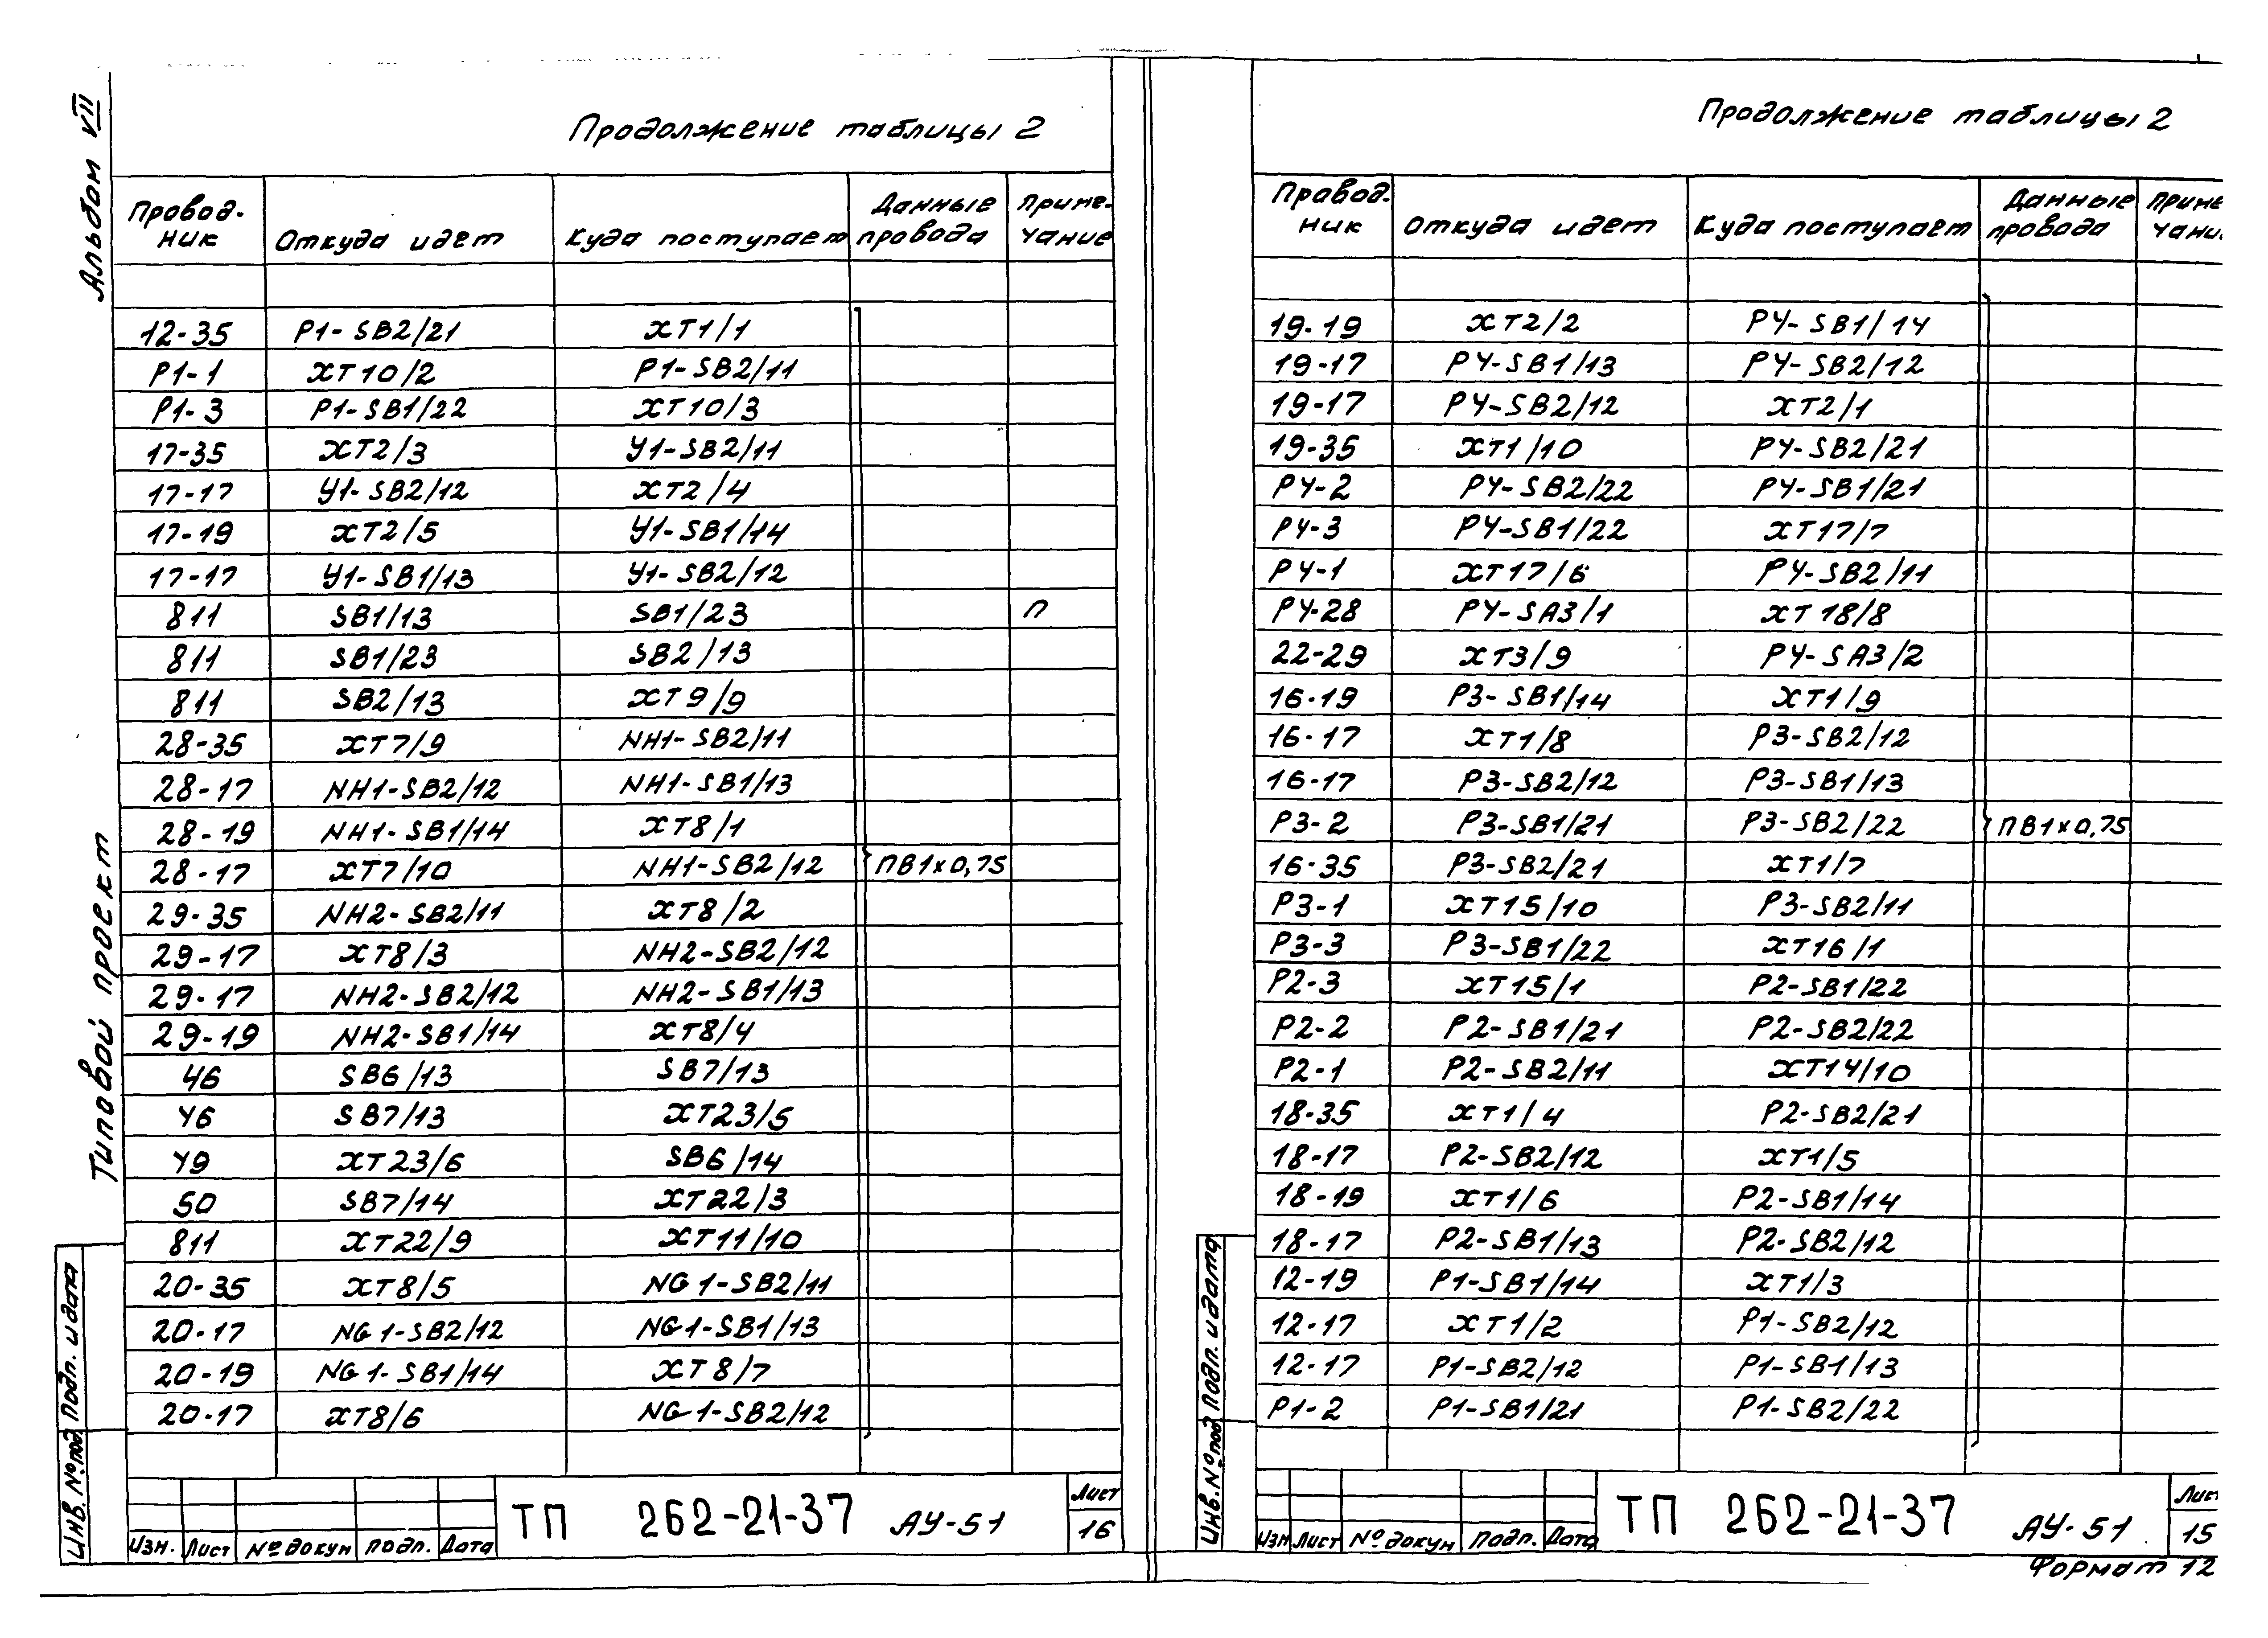 Альбом VII
Типовой проект
Продолжение таблицы 2
Провод. Откуда идет Куда поступает Данные Приме-
ник провода чание
12-35 Р1-SB2/21 ХТ1/1
Р1-1 ХТ10/2 Р1-SB2/11
Р1-3 Р1-SB1/22 ХТ10/3
17-35 ХТ2/3 У1-SB2/11
17-17 У1-SB2/12 ХТ2/4
17-19 ХТ2/5 У1-SB1/14
17-17 У1-SB1/13 У1-SB2/12
811 SB1/13 SB1/23 п
811 SB1/23 SB2/13
811 SB2/13 ХТ9/9
28-35 ХТ7/9 NH1-SB2/11
28-17 NH1-SB2/12 NH1-SB1/13
28-19 NH1-SB1/14 ХТ8/1
28-17 ХТ7/10 NH1-SB2/12 ПВ1х0,75
29-35 NH2-SB2/11 ХТ8/2
29-17 ХТ8/3 NH2-SB2/12
29-17 NH2-SB2/12 NH2-SB1/13
29-19 NH2-SB1/14 ХТ8/4
46 SB6/13 SB7/13
46 SB7/13 ХТ23/5
49 ХТ23/6 SB6/14
50 SB7/14 ХТ22/3
811 ХТ22/9 ХТ11/10
20-35 ХТ8/5 NG1-SB2/11
20-17 NG1-SB2/12 NG1-SB1/13
20-19 NG1-SB1/14 ХТ8/7
20-17 ХТ8/6 NG1-SB2/12
Инв. № под. Подп. и дата
Изм. Лист № докум Подп. Дата
ТП 262-21-37 АУ-51
Лист
16
Продолжение таблицы 2
Провод. Откуда идет Куда поступает Данные Приме
ник провода чани
19-19 ХТ2/2 Р4-SB1/14
19-17 Р4-SB1/13 Р4-SB2/12
19-17 Р4-SB2/12 ХТ2/1
19-35 ХТ1/10 Р4-SB2/21
Р4-2 Р4-SB2/22 Р4-SB1/21
Р4-3 Р4-SB1/22 ХТ17/7
Р4-1 ХТ17/6 Р4-SB2/11
Р4-28 Р4-SA3/1 ХТ18/8
22-29 ХТ3/9 Р4-SA3/2
16-19 Р3-SB1/14 ХТ1/9
16-17 ХТ1/8 Р3-SB2/12
16-17 Р3-SB2/12 Р3-SB1/13
Р3-2 Р3-SB1/21 Р3-SB2/22 ПВ1х0,75
16-35 Р3-SB2/21 ХТ1/7
Р3-1 ХТ15/10 Р3-SB2/11
Р3-3 Р3-SB1/22 ХТ16/1
Р2-3 ХТ15/1 Р2-SB1/22
Р2-2 Р2-SB1/21 Р2-SB2/22
Р2-1 Р2-SB2/11 ХТ14/10
18-35 ХТ1/4 Р2-SB2/21
18-17 Р2-SB2/12 ХТ1/5
18-19 ХТ1/6 Р2-SB1/14
18-17 Р2-SB1/13 Р2-SB2/12
12-19 Р1-SB1/14 ХТ1/3
12-17 ХТ1/2 Р1-SB2/12
12-17 Р1-SB2/12 Р1-SB1/13
Р1-2 Р1-SB1/21 Р1-SB2/22
Инв. № под Подп. и дата
Изм Лист № докум Подп. Дата
ТП 262-21-37 АУ-51
Лист
15
Формат 12